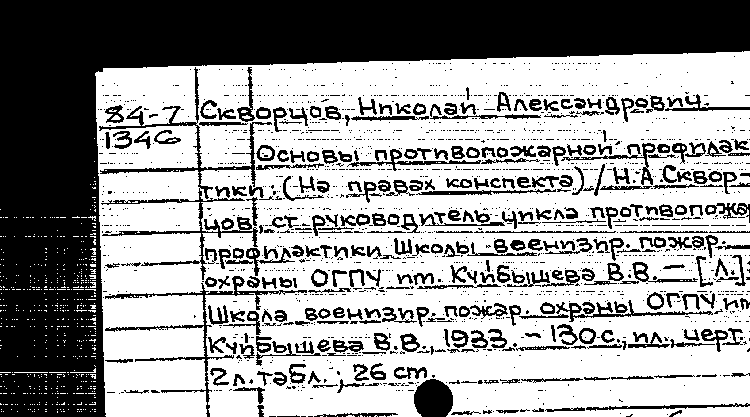 84-7
1346
Скворцов, Николай Александрович.
Основы противопожарной профилак
тики: (На правах конспекта) / Н.А. Сквор-
цов, ст. руководитель цикла противопожар
профилактики Школы военизир. пожар.
охраны ОГПУ им. Куйбышева В.В. — [Л.]:
Школа военизир. пожар. охраны ОГПУ им
Куйбышева В.В., 1933. - 130 с., ил., черт.,
2 л. табл.; 26 см.